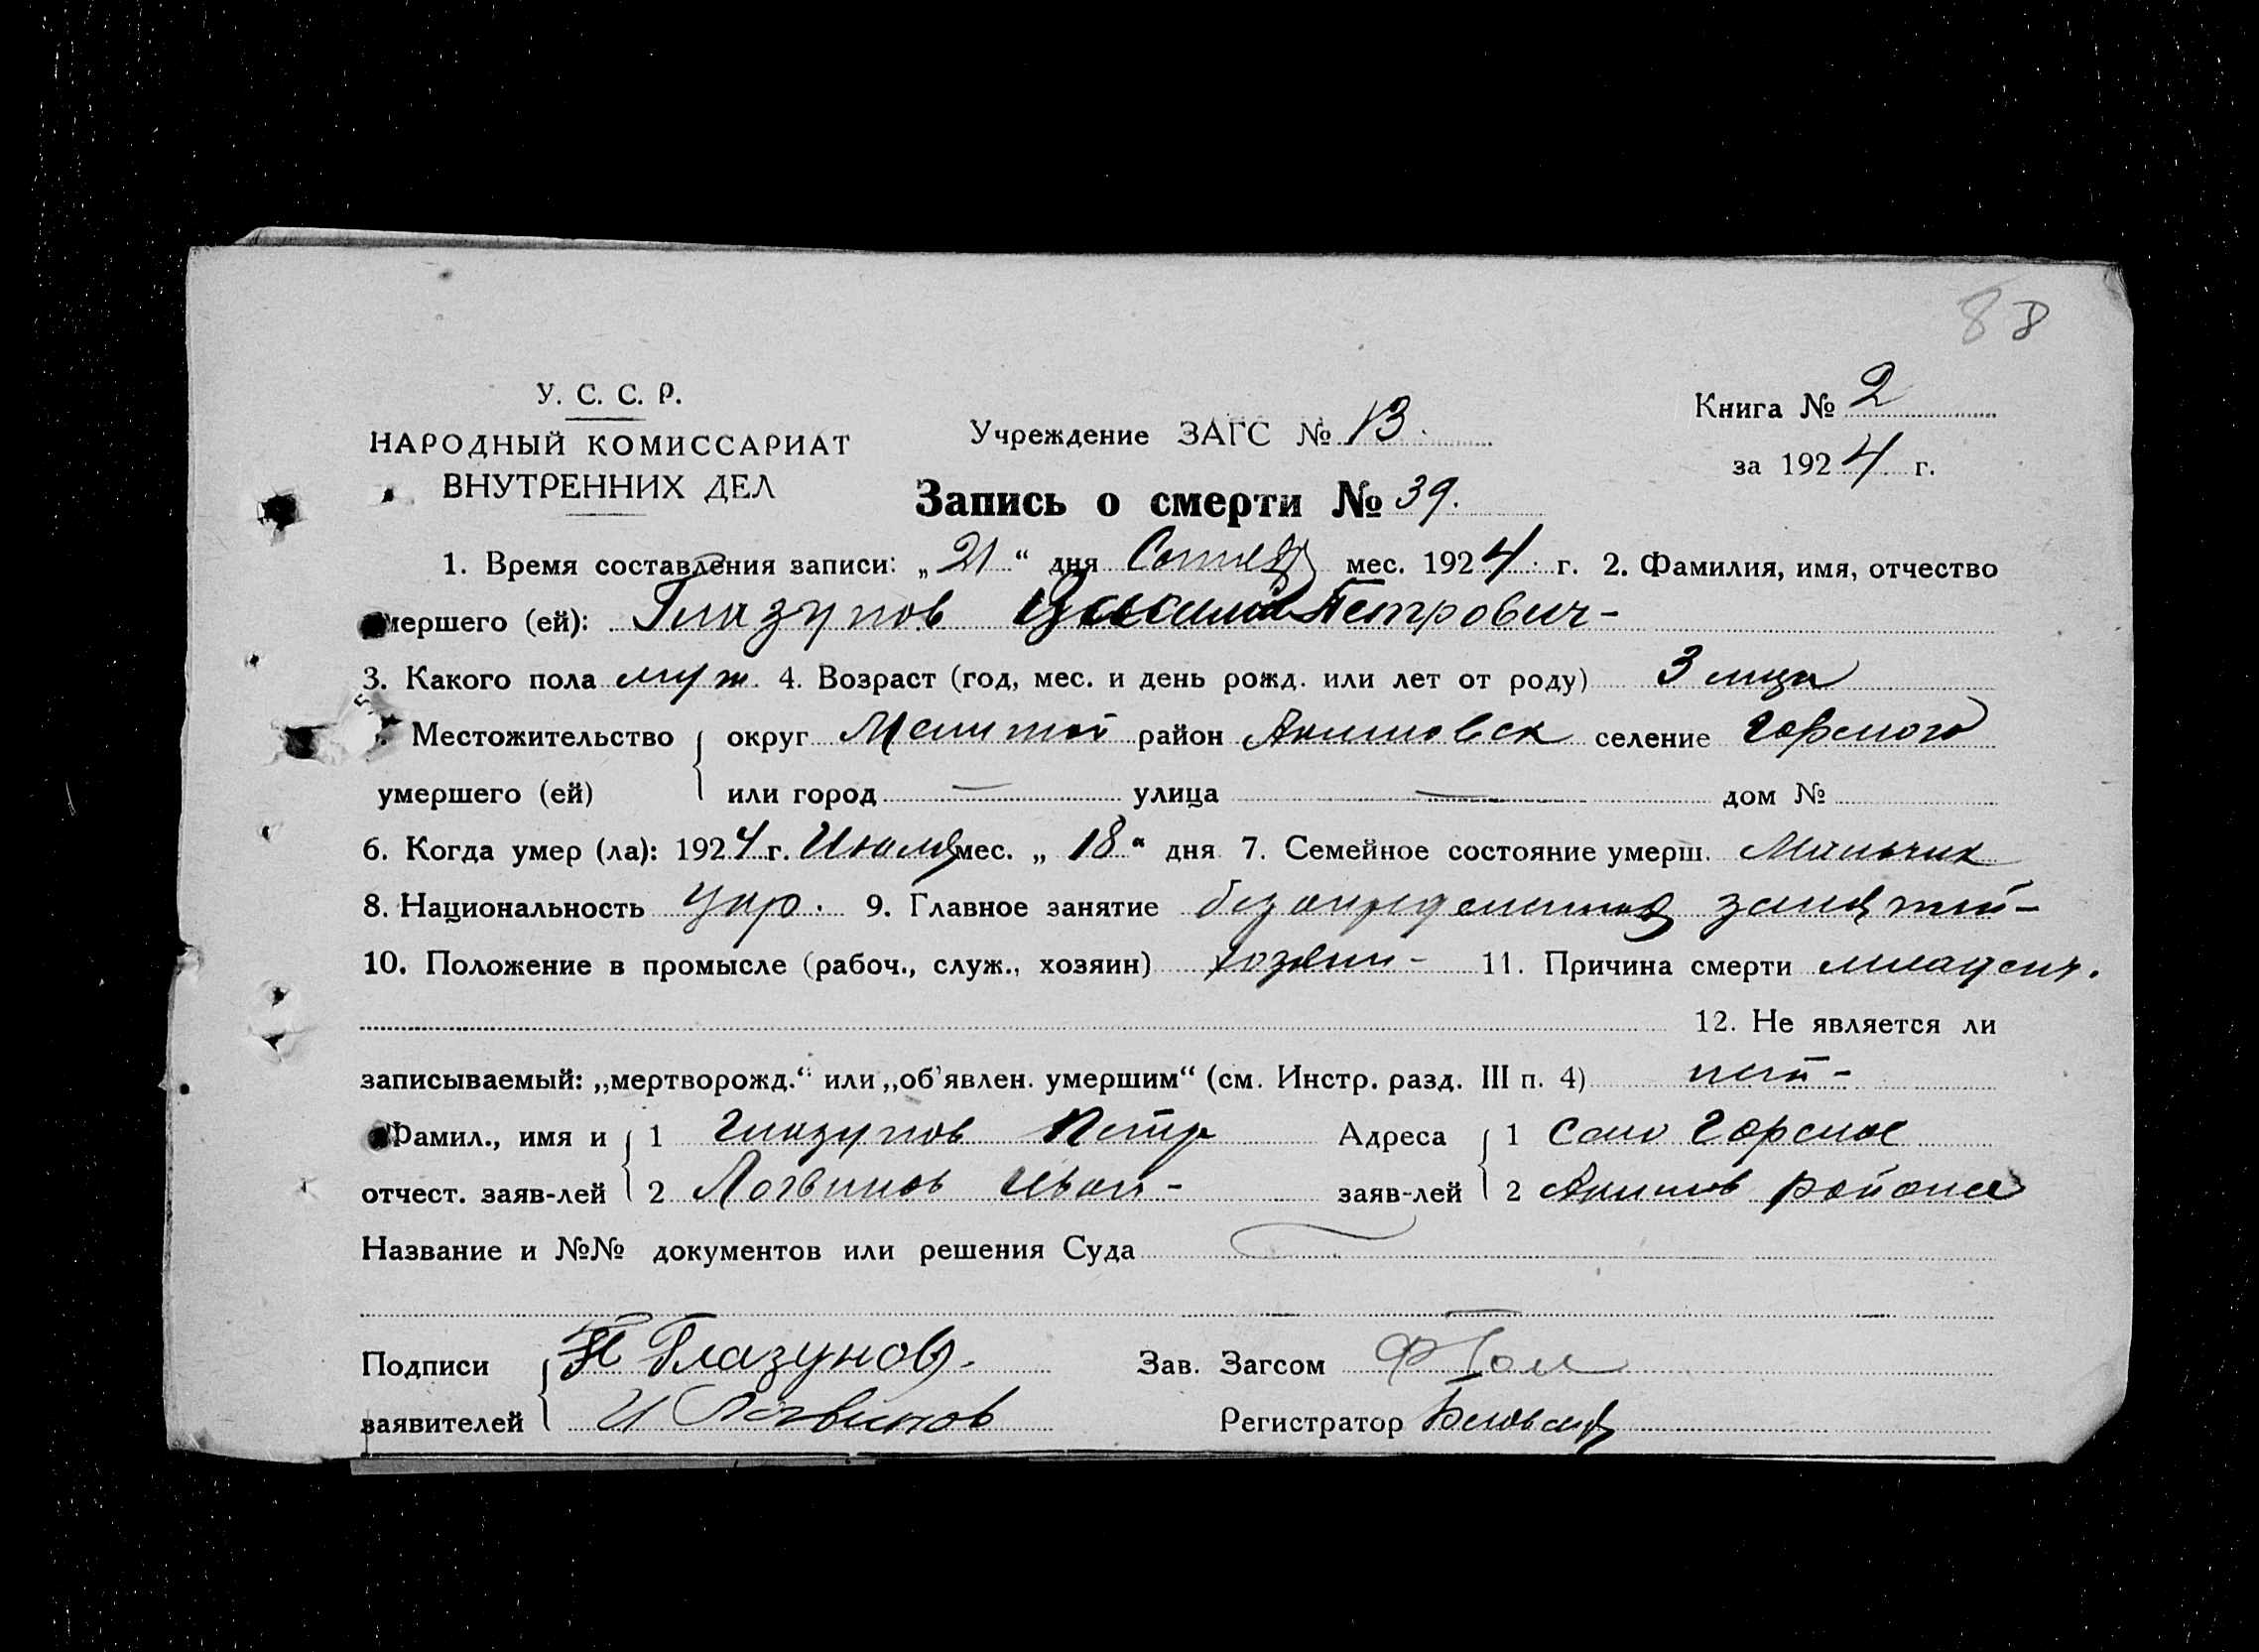 88
У. С. С. Р.
НАРОДНЫЙ КОМИССАРИАТ
ВНУТРЕННИХ ДЕЛ
Учреждение ЗАГС № 13.
Книга № 2
за 1924 г.
Запись о смерти № 39.
1. Время составления записи: „21“ дня мес. 1924 г. 2. Фамилия, имя, отчество
умершего (ей): Глазунов Василий Петрович -
3. Какого пола муж. 4. Возраст (год, мес. и день рожд. или лет от роду) 3 мца
Местожительство округ Мелитой район Акимовск селение Горелого
умершего (ей) или город — улица — дом №
6. Когда умер (ла): 1924 г. Июля мес. „18“ дня 7. Семейное состояние умерш. Мальчик
8. Национальность Укр. 9. Главное занятие без определенных занятий -
10. Положение в промысле (рабоч., служ., хозяин) хозяин - 11. Причина смерти младенч.
12. Не является ли
записываемый: „мертворожд.“ или „об'явлен. умершим“ (см. Инстр. разд. III п. 4) нет -
Фамил., имя и 1 Глазунов Петр Адреса 1 Село Горелое
отчест. заяв-лей 2 Логвинов Иван - заяв-лей 2 Акимов района
Название и №№ документов или решения Суда —
Подписи П Глазунов. Зав. Загсом
заявителей И Логвинов Регистратор